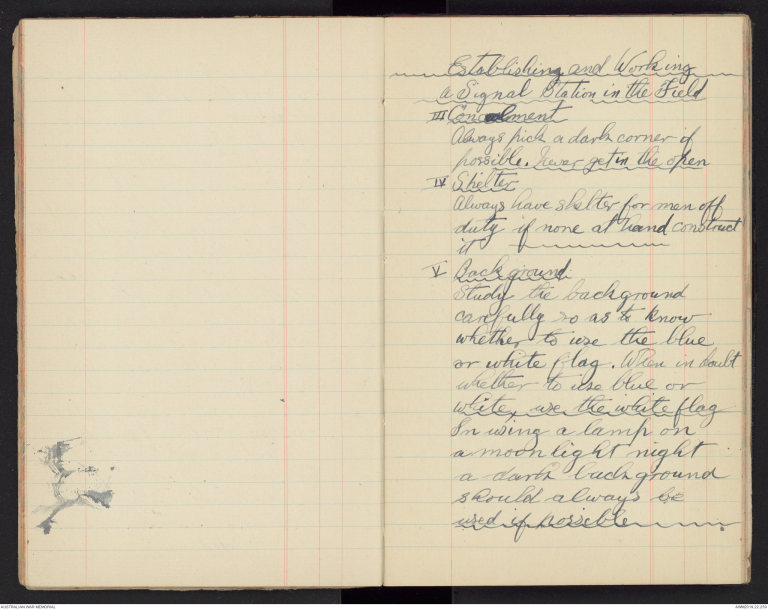 Establishing and Working
a Signal Station in the Field
III Concealment
Always pick a dark corner if
possible. Never get in the open
IV Shelter
Always have shelter for men off
duty if none at hand construct
it
V Back ground
Study the background
carefully so as to know
whether to use the blue
or white flag. When in doubt
whether to use blue or
white, use the white flag
In using a lamp on
a moonlight night
a dark background
should always be
used if possible.
AUSTRALIAN WAR MEMORIAL